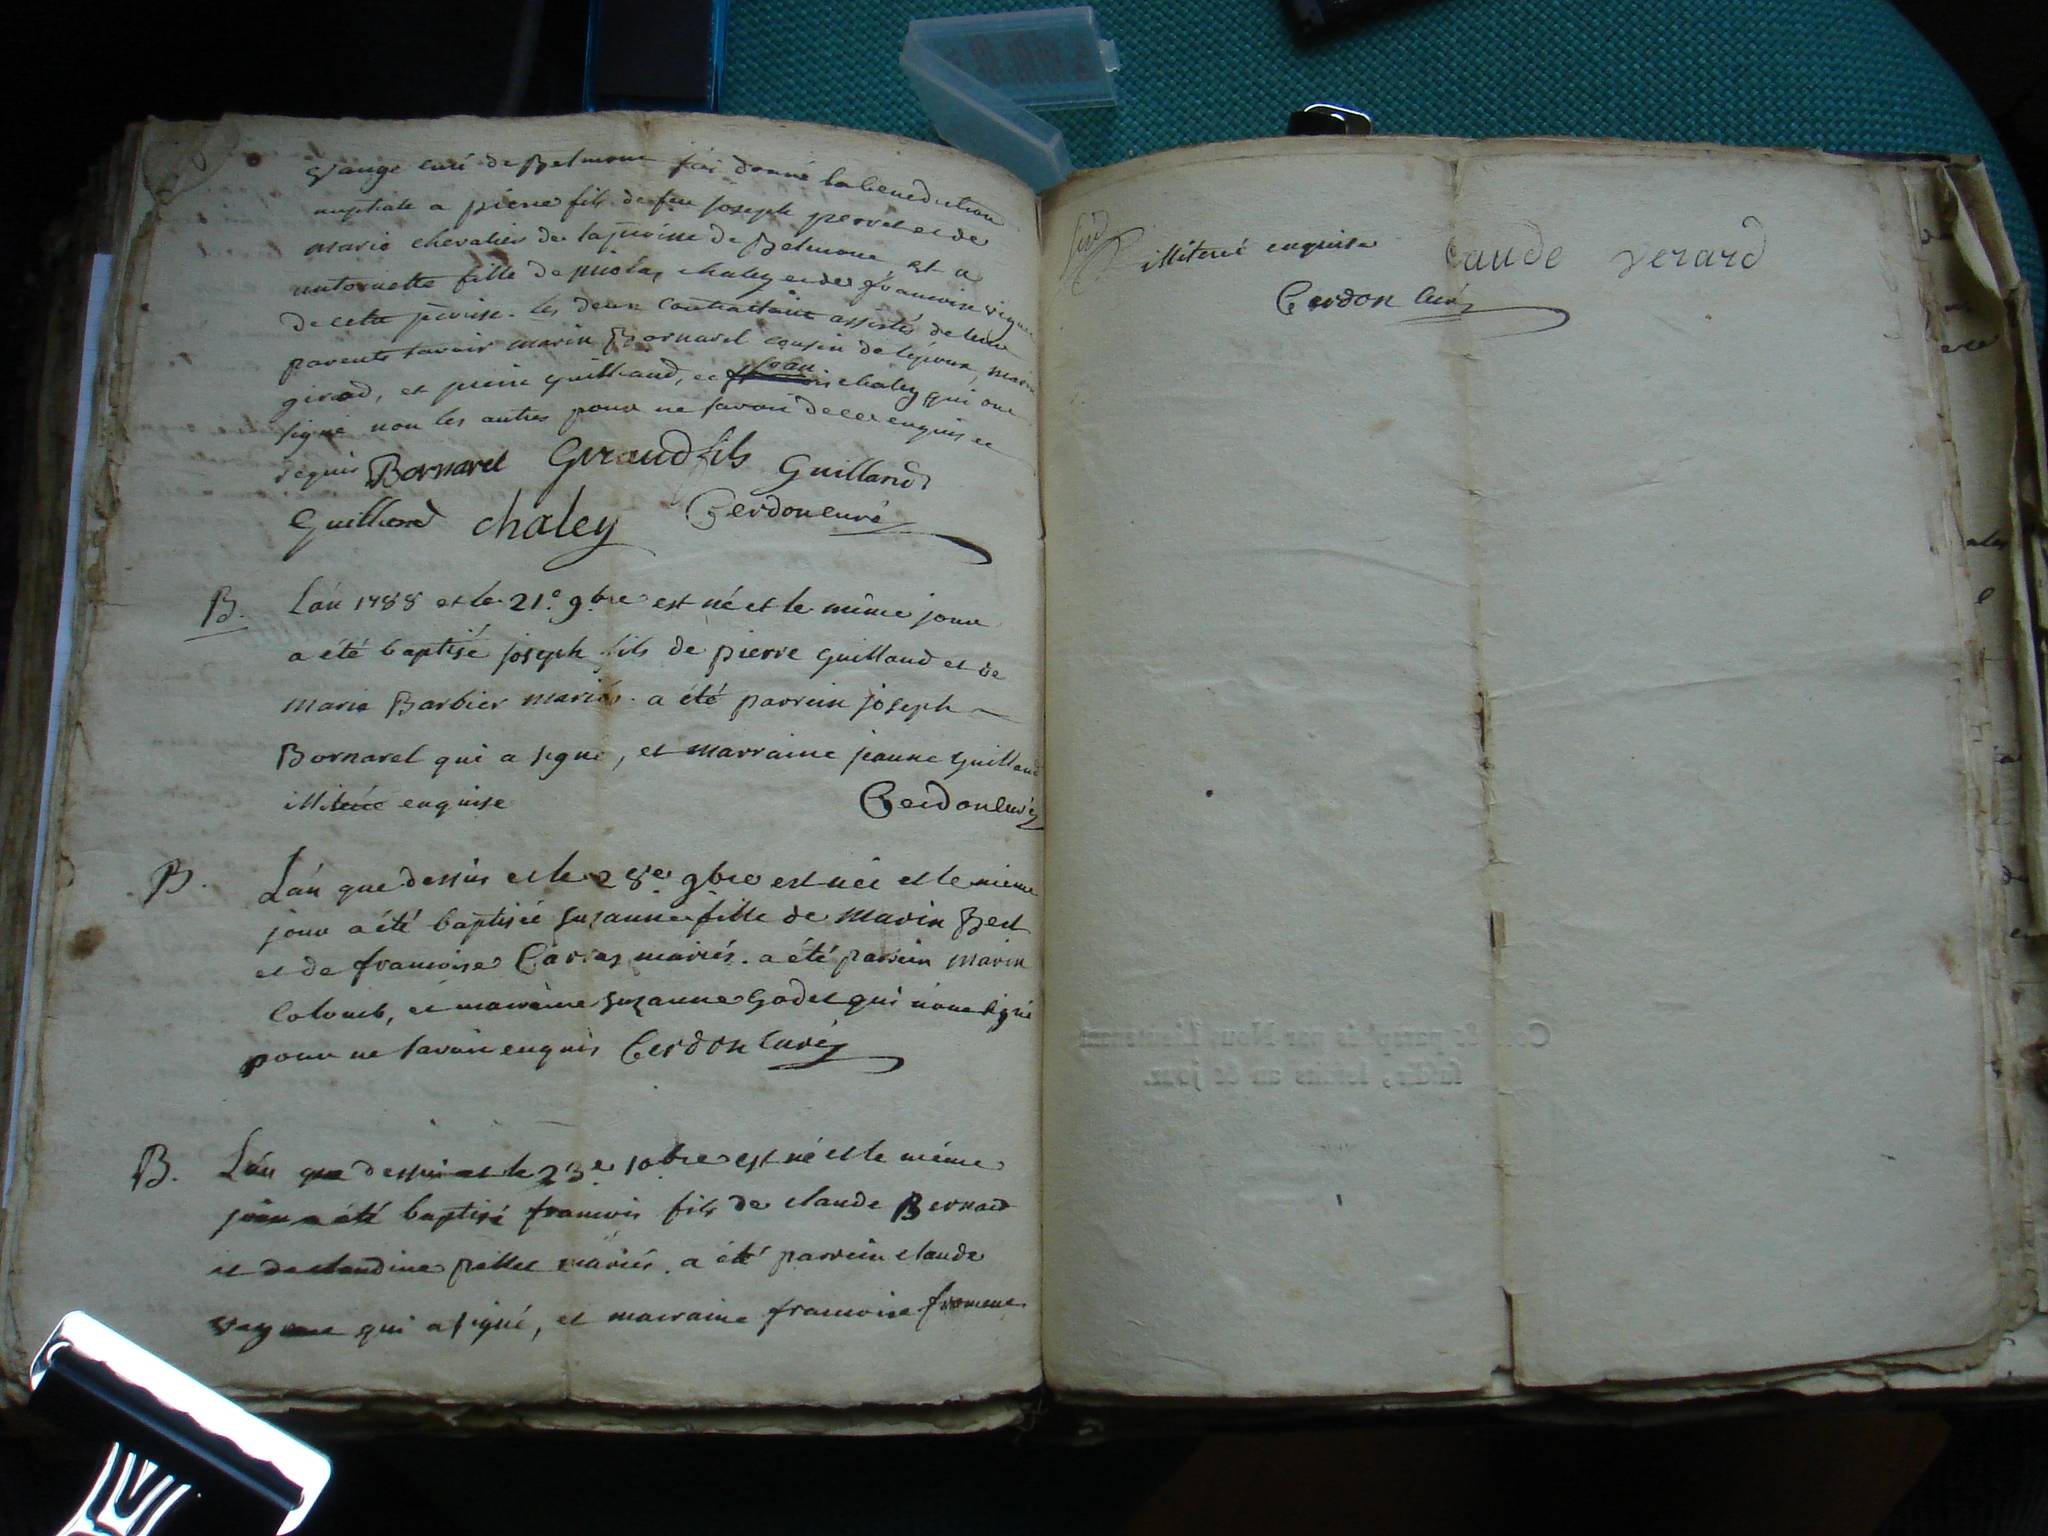 curé de Belmont j'ai donné la benediction
nuptiale a pierre fils de feu joseph perret et de
marie chevalier de la proisse de Belmont et a
antoinette fille de nicolas chaley et de francoise
de cette proisse. les deux contractants assistés de leurs
parents savoir marin Bornarel cousin de l'epoux, marin
giraud, et pierre guilland, et jean chaley qui ont
signé non les autres pour ne savoir de ce enquis et
requis Bornarel Giraud fils Guilland
Guilland chaley Cerdon curé
B. L'an 1788 et le 21.e 9.bre est né et le même jour
a été baptisé joseph fils de pierre guilland et de
marie Barbier mariés. a été parrein joseph
Bornarel qui a signé, et marraine jeanne guilland
illiterée enquise Cerdon curé
B. L'an que dessus et le 28e 9bre est née et le même
jour a été baptisée suzanne fille de marin Bert
et de francoise mariés. a été parrein marin
Colomb, et marreine suzanne Godet qui n'ont signé
pour ne savoir enquis Cerdon curé
B. L'an que dessus et le 23e 10bre est né et le même
jour a été baptisé francois fils de claude Bernard
et de claudine pellet mariés. a été parrein claude
qui a signé, et marraine francoise
illiterée enquise Claude verard
Cerdon Curé